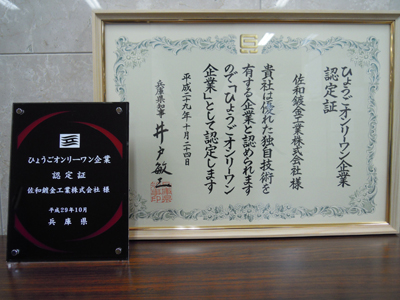 ひょうごオンリーワン企業
認定証
佐和鍍金工業株式会社 様
平成29年10月
兵庫県
ひょうごオンリーワン企業
認定証
佐和鍍金工業株式会社様
貴社は優れた独自技術を
有する企業と認められます
ので「ひょうごオンリーワン
企業」として認定します
平成二十九年十月二十四日
兵庫県知事 井戸敏三